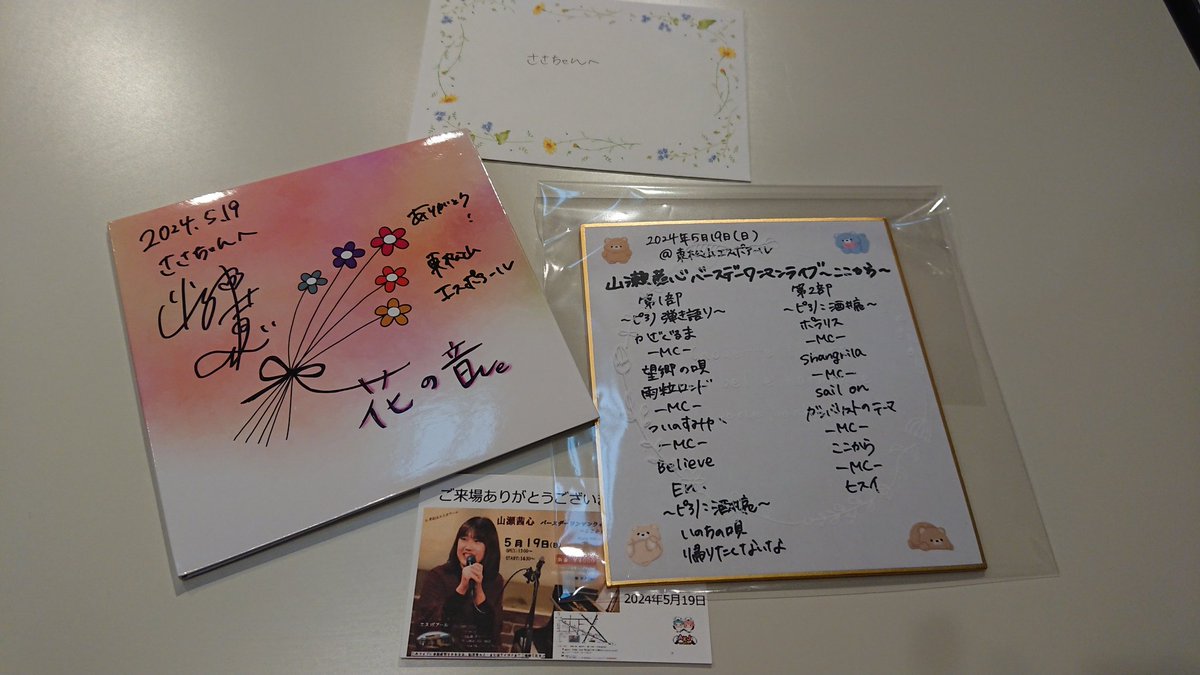 ささちゃんへ
2024.5.19
ささちゃんへ
ありがとう!
東松山
エスポアール
花の音
2024年5月19日(日)
@東松山エスポアール
山瀬茜心バースデーワンマンライブ〜ここから〜
第1部
〜ピアノ弾き語り〜
かざぐるま
-MC-
望郷の唄
雨粒ロンド
-MC-
ついのすみか
-MC-
Believe
〜ピアノ二酒井亮〜
いのちの唄
帰りたくないな
第2部
〜ピアノ二酒井亮〜
ポラリス
-MC-
shangrila
-MC-
sail on
ガンバリストのテーマ
-MC-
ここから
-MC-
ヒスイ
ご来場ありがとうございま
山瀬茜心 バースデーワンマンライ
5月19日(日)
エスポアール
2024年5月19日